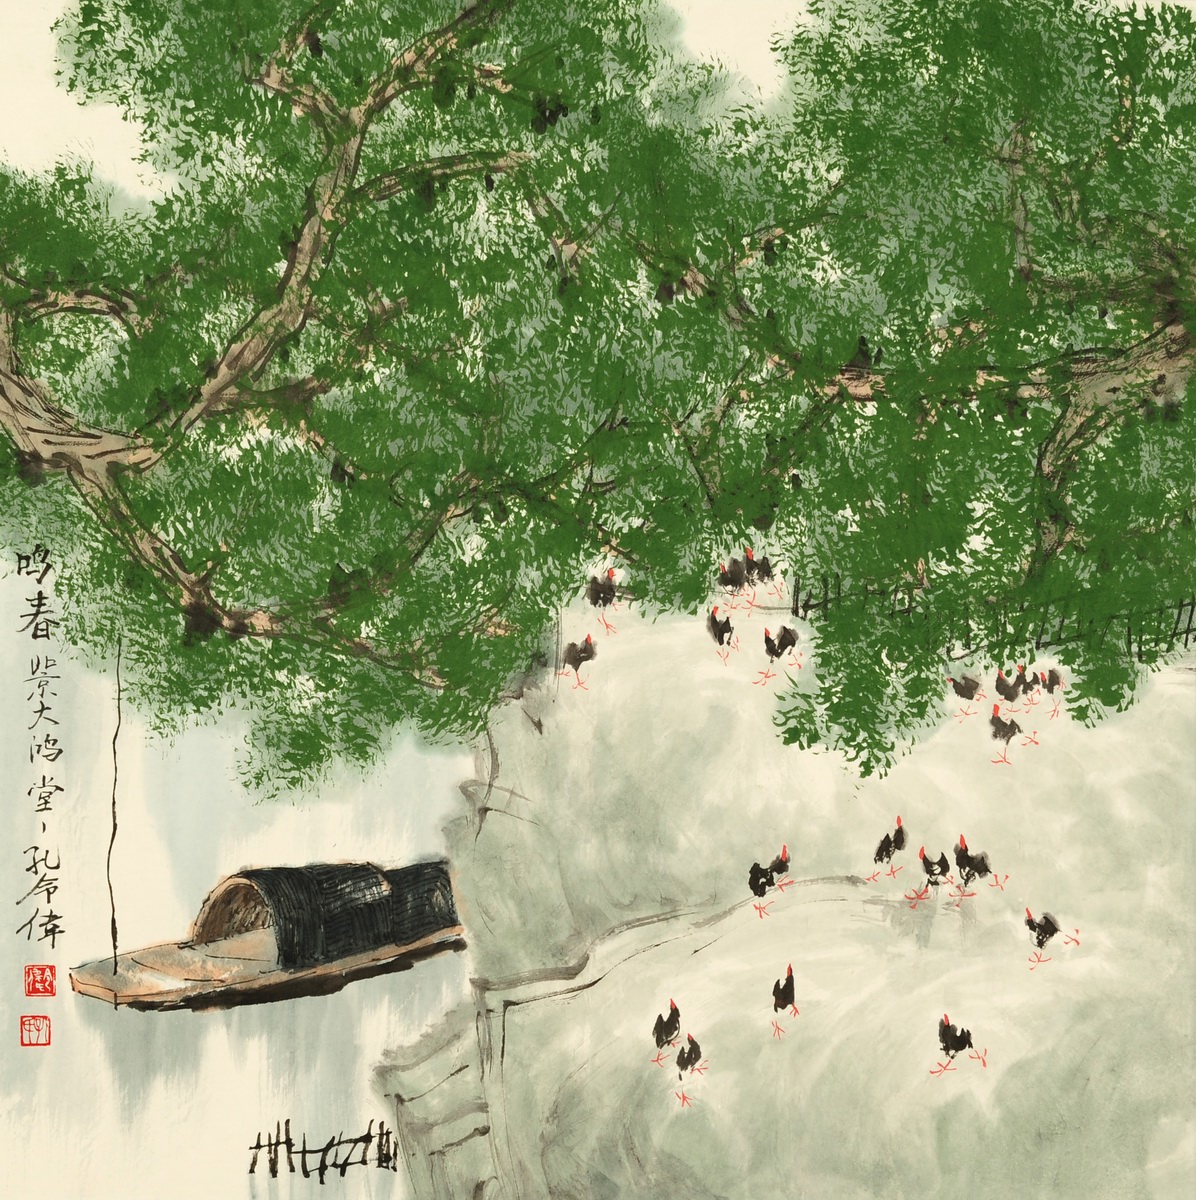 鸣春
紫大鸿堂、孔令伟